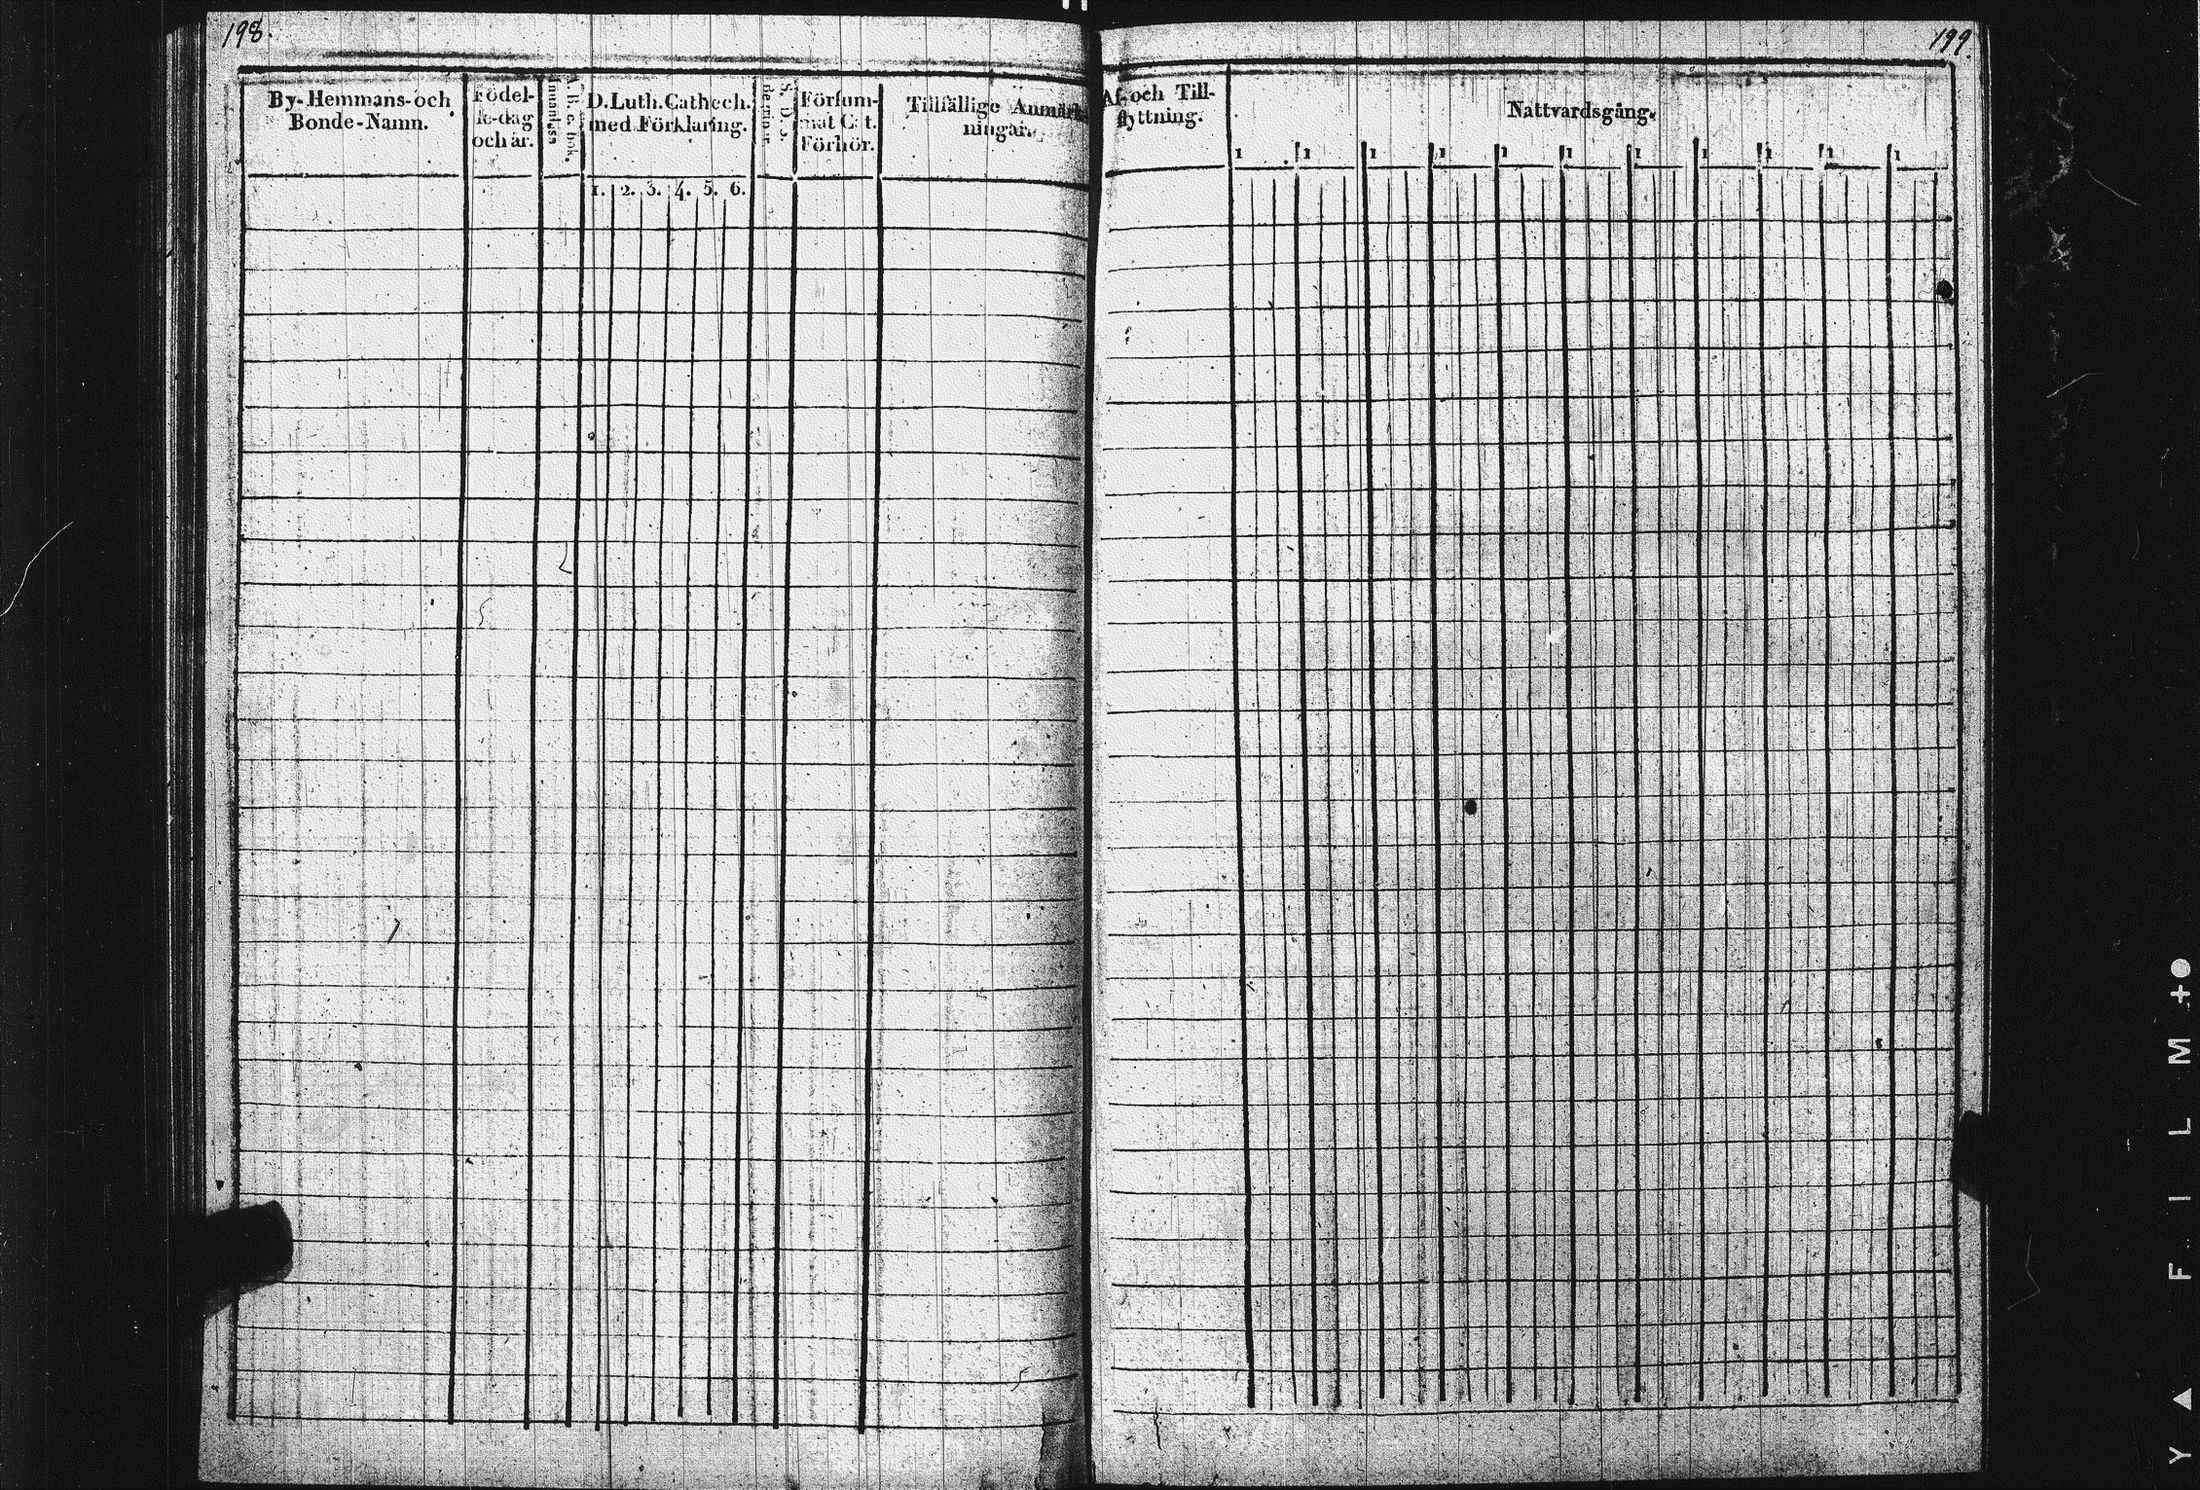 198.
By-Hemmans-och
Bonde-Namn.
Födel-
se-dag
och år.
A. B. c. bok.
Innanläsn
D. Luth. Cathech.
med Förklaring.
1. 2. 3. 4. 5. 6.
Begrip
S. D. J.
Försum-
mat Cat.
Förhör.
Tillfällige Anmärk-
ningar.
199
Af- och Till-
flyttning.
Nattvardsgång.
1 1 1 1 1 1 1 1 1 1 1
Y ▲ FILM +●